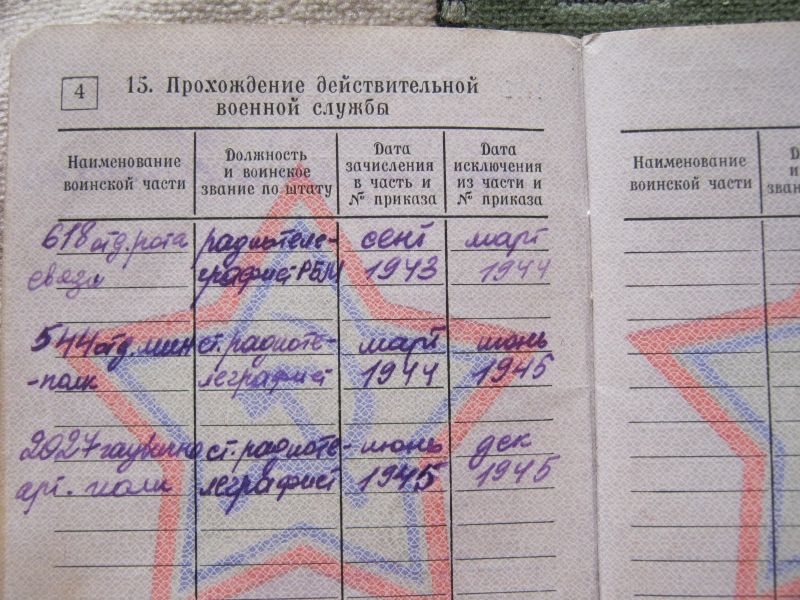 4
15. Прохождение действительной
военной службы
Наименование
воинской части
Должность
и воинское
звание по штату
Дата
зачисления
в часть и
№ приказа
Дата
исключения
из части и
№ приказа
618 отд. рота
связи
радиотеле-
графист РБМ
сент
1943
март
1944
544 отд. мин
-полк
ст. радиоте-
леграфист
март
1944
июнь
1945
2027 гаубично
арт. полк
ст. радиоте-
леграфист
июнь
1945
дек
1945
Наименование
воинской части